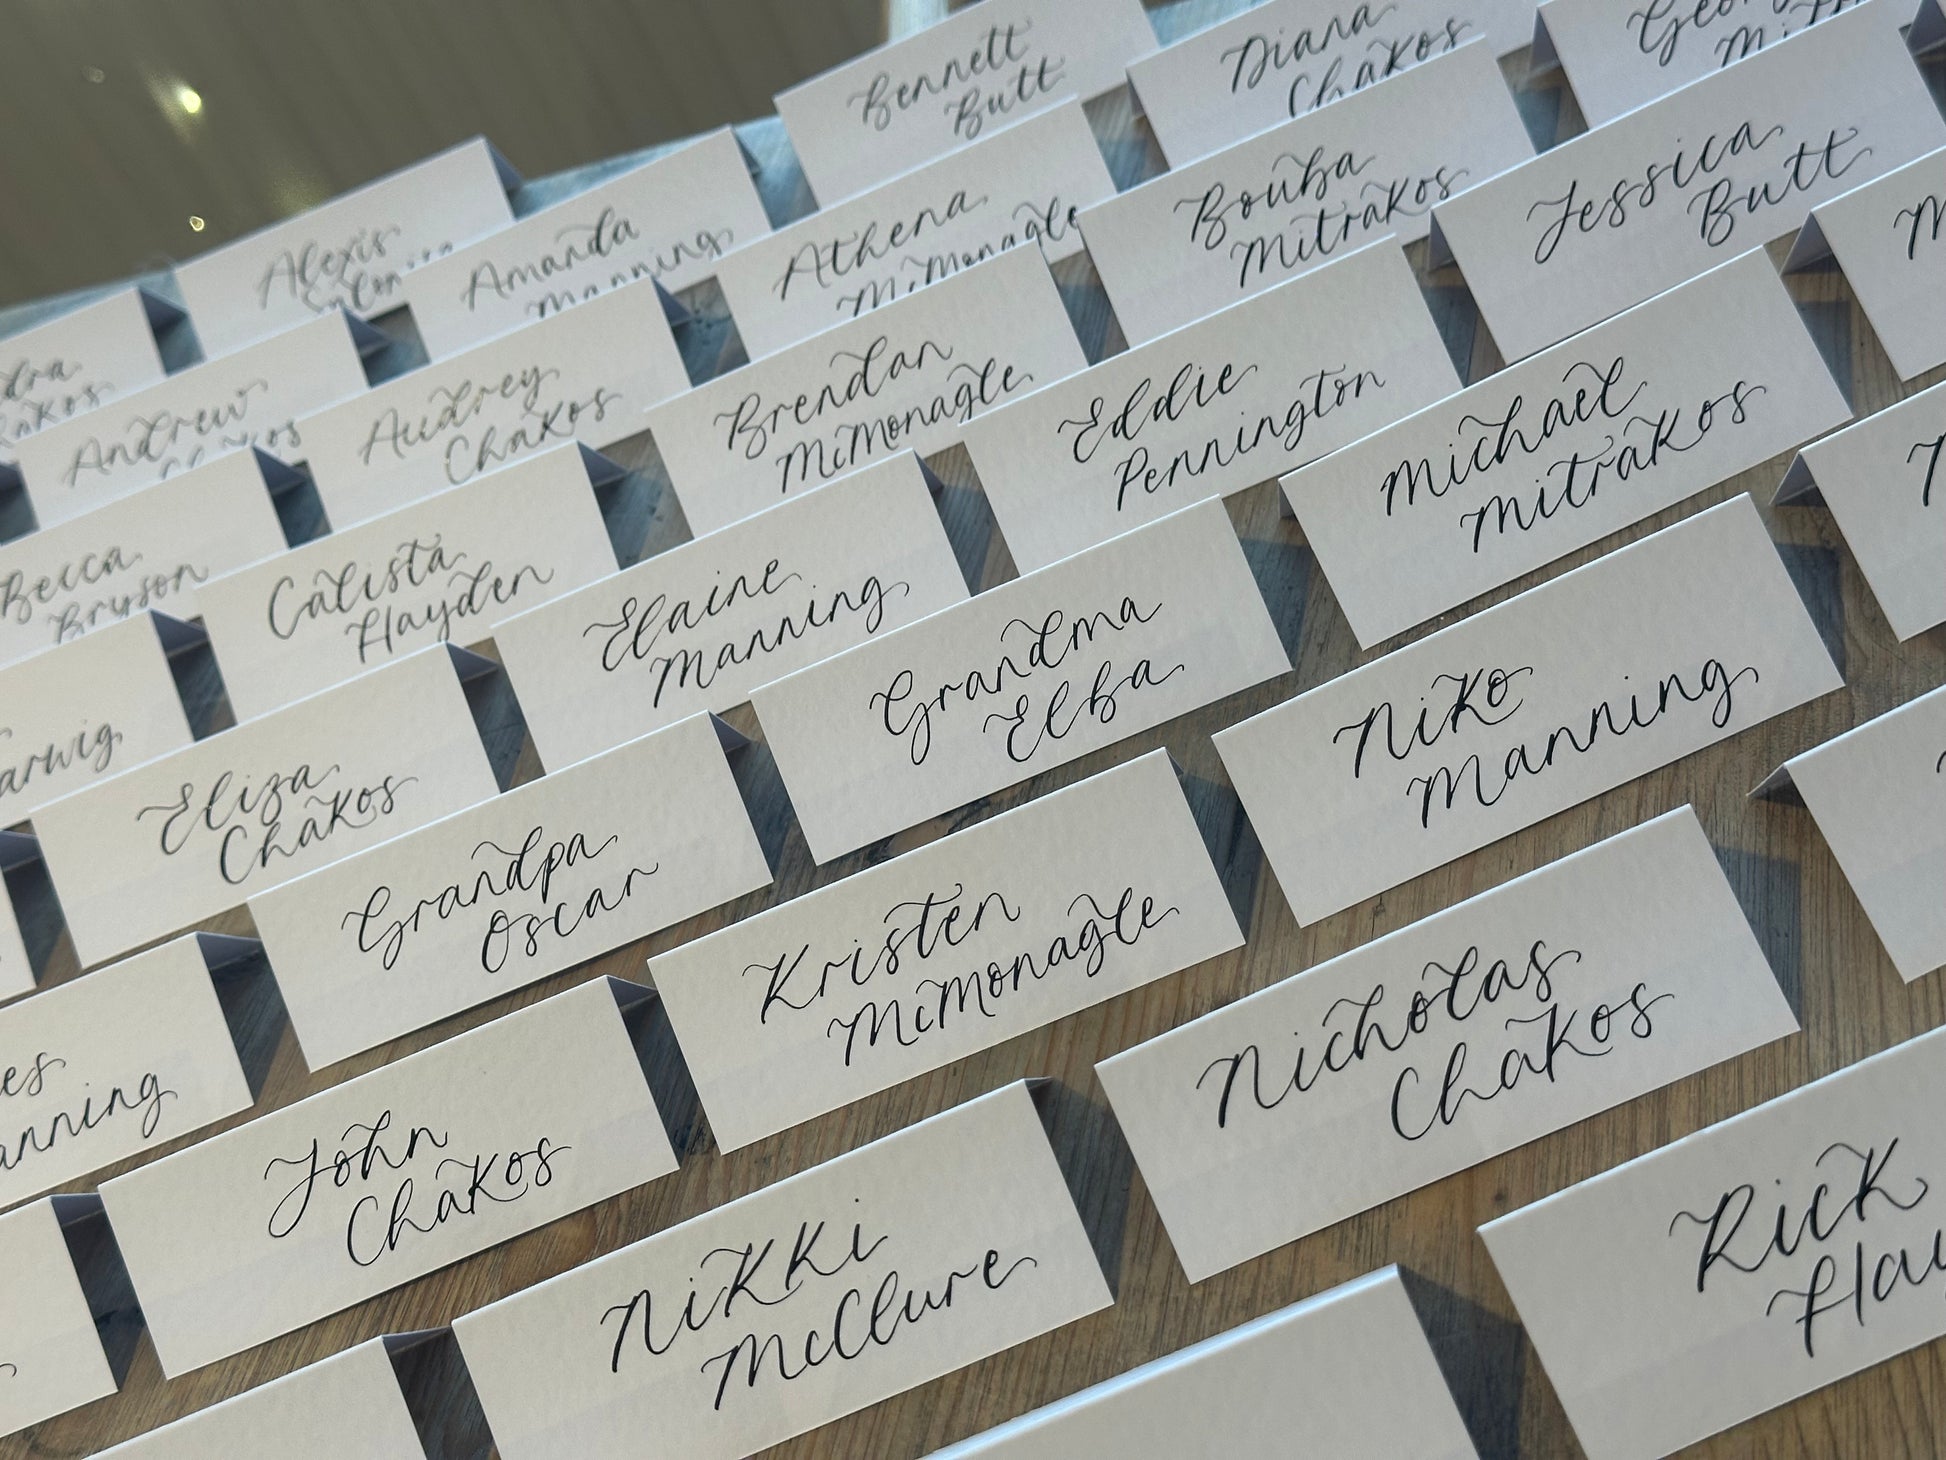 Bennett
Butt
Diana
Chakos
Alexis
Amanda
Manning
Athena
McMonagle
Bouba
Mitrakos
Jessica
Butt
Andrew
Chakos
Audrey
Chakos
Brendan
McMonagle
Eddie
Pennington
Michael
Mitrakos
Becca
Bryson
Calista
Hayden
Elaine
Manning
Grandma
Elba
Niko
Manning
Eliza
Chakos
Grandpa
Oscar
Kristen
McMonagle
Nicholas
Chakos
John
Chakos
Nikki
McClure
Rick